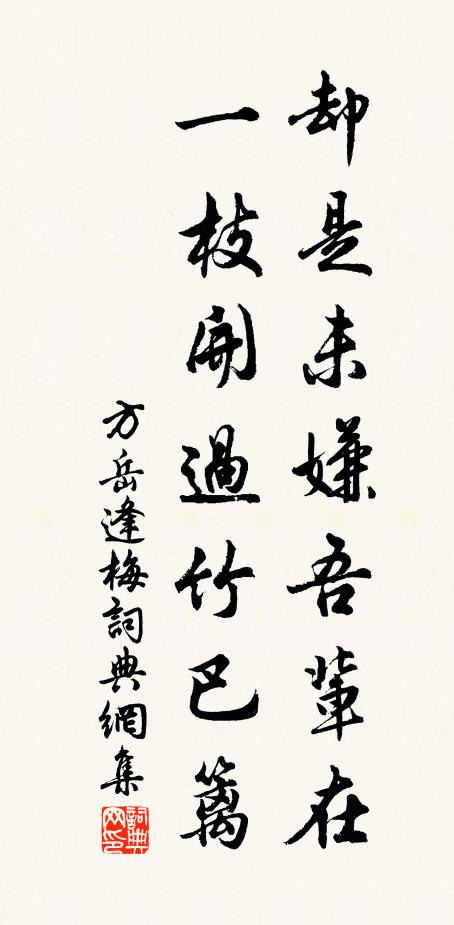 却是未嫌吾軰在
一枝開過竹巴籬
方岳逢梅詞典網集
詞典網印